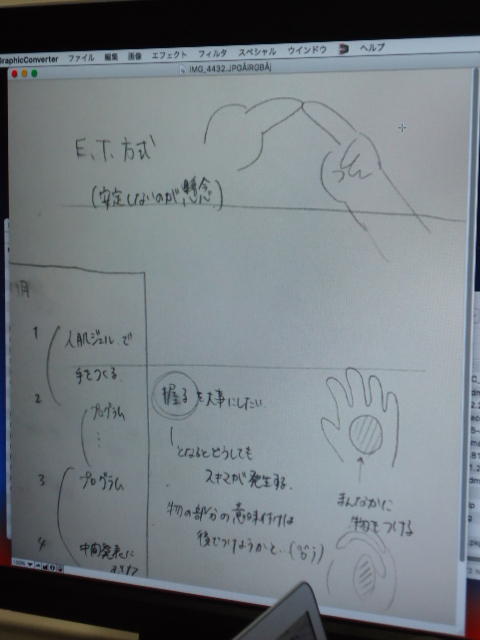 GraphicConverter ファイル 編集 画像 エフェクト フィルタ スペシャル ウインドウ ヘルプ
E.T. 方式
(安定しないのが、懸念)
月
1
人肌ジェルで
手をつくる
2
プログラム
⋮
3
プログラム
4
中間発表に
握るを大事にしたい
となるとどうしても
スキマが発生する.
物の部分の意味付けは
後でつけようかと…
まんなかに
物をつける
100%